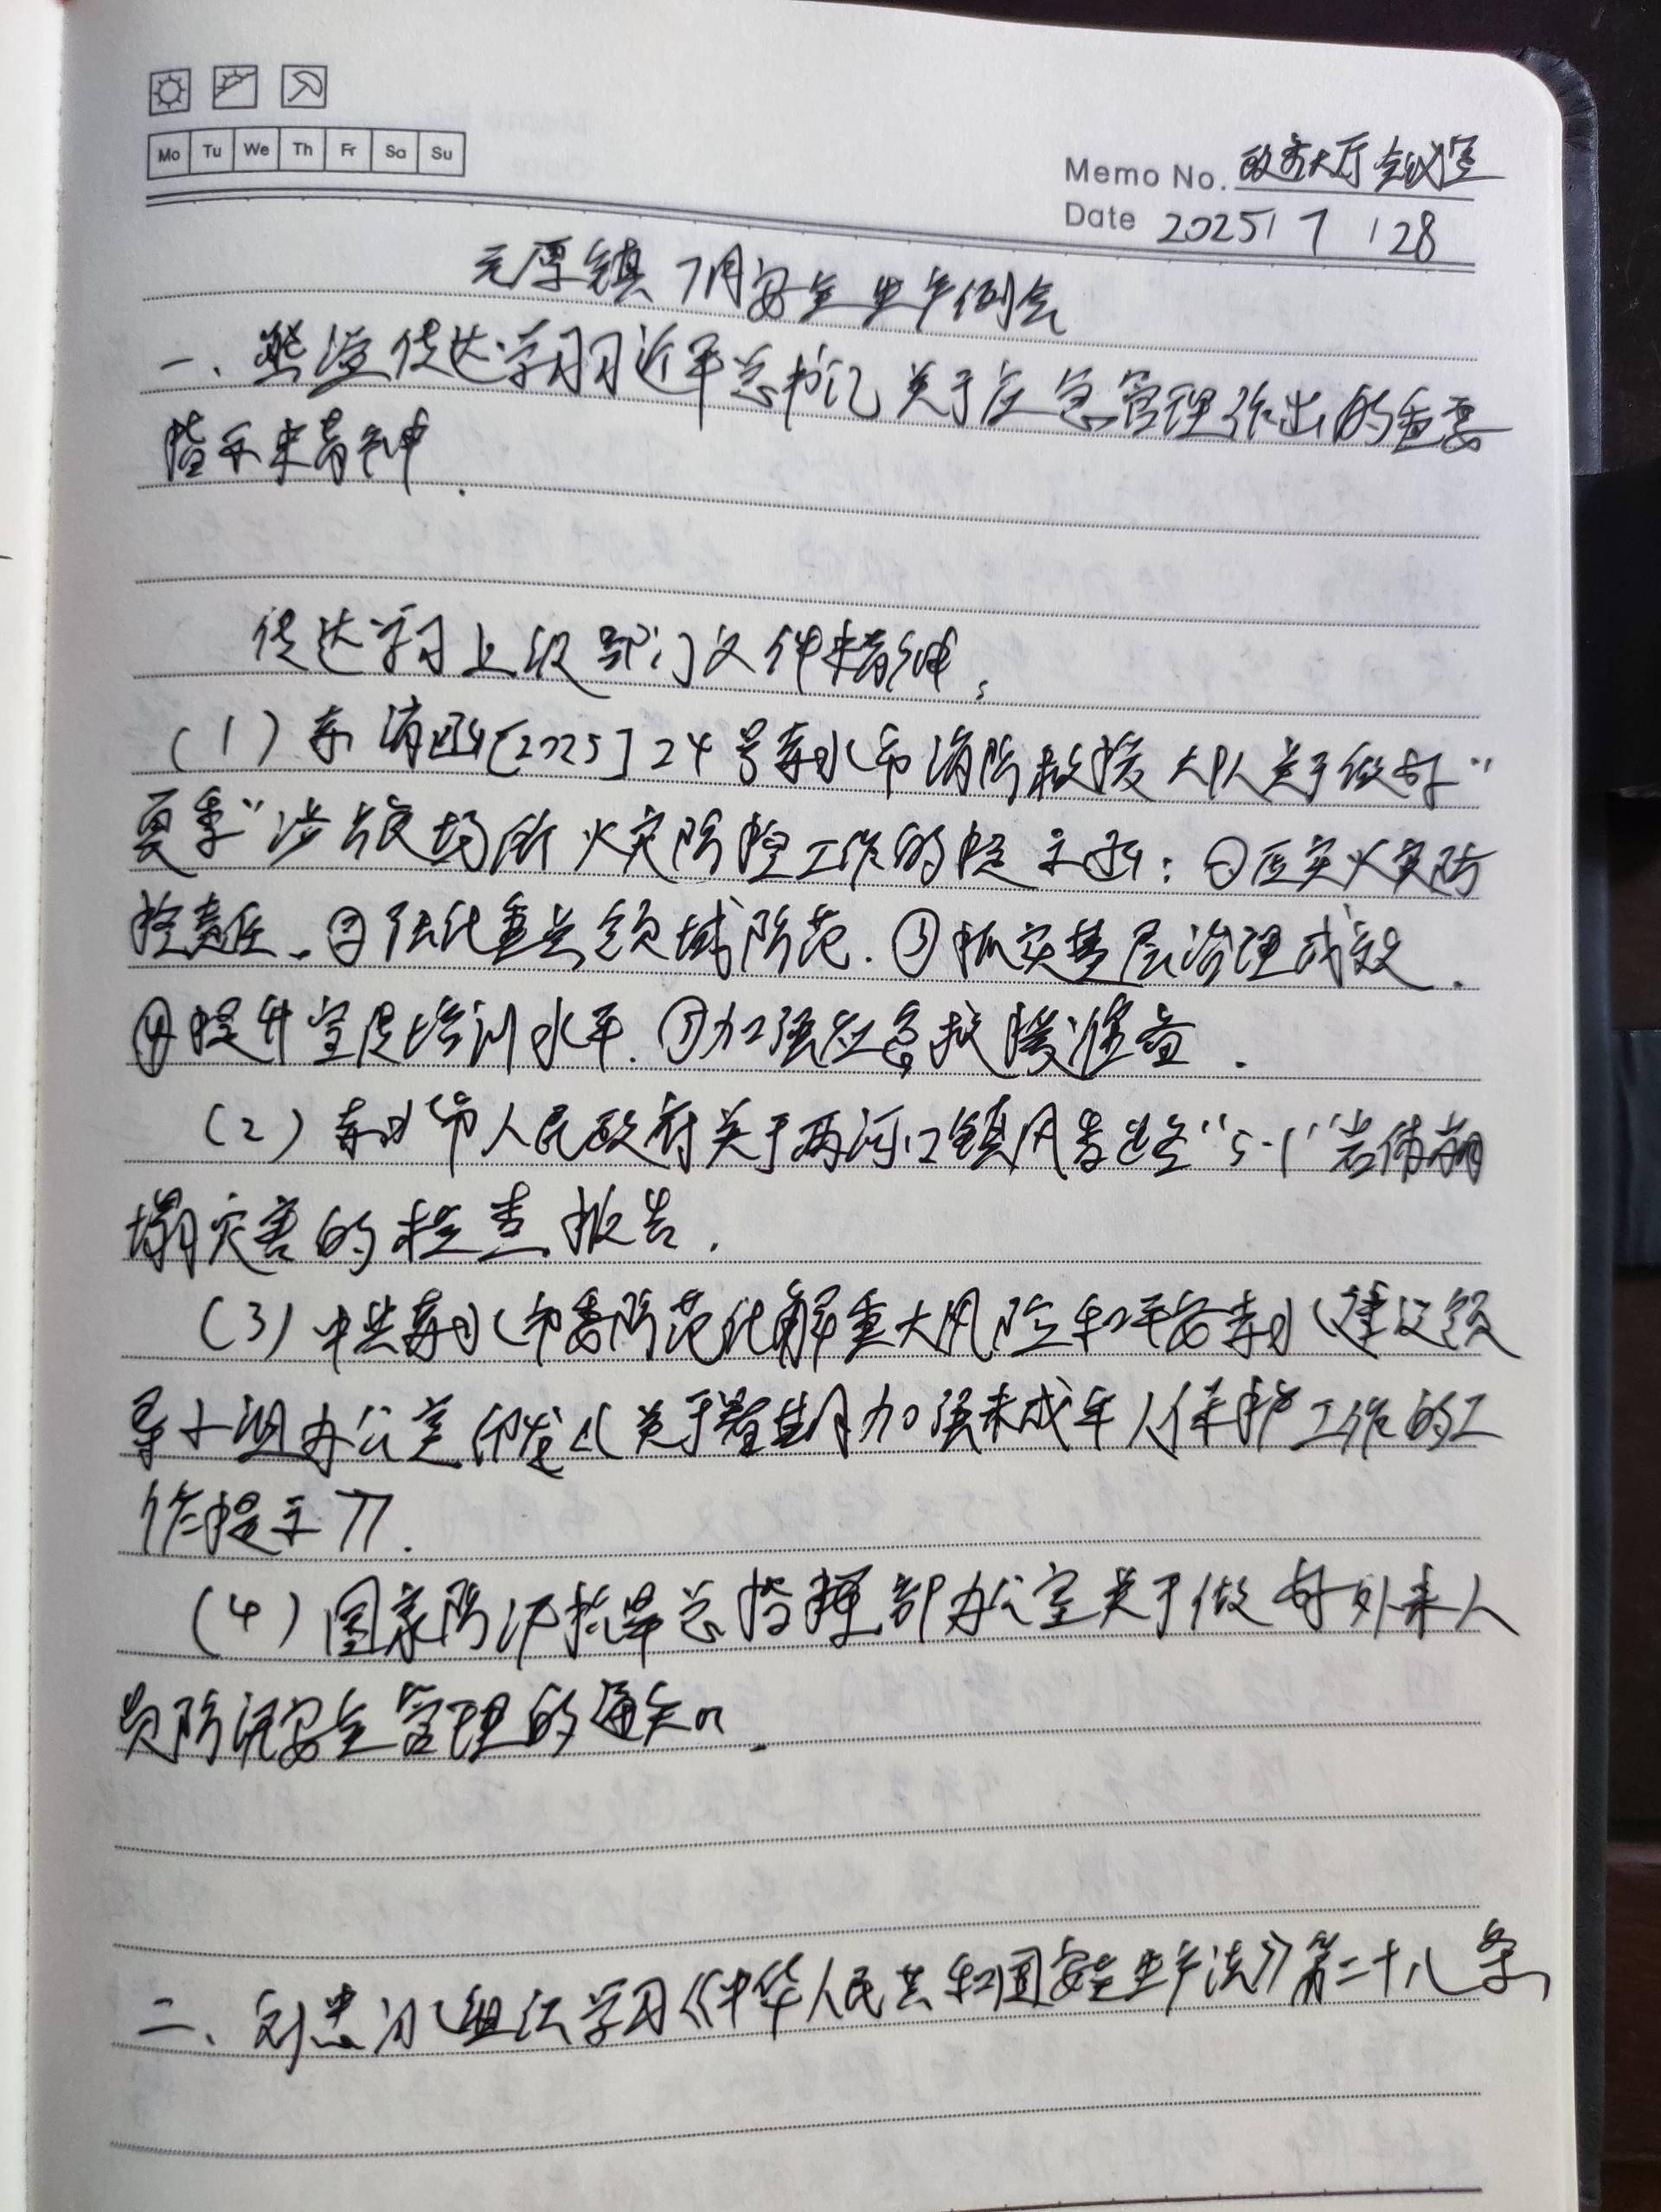 Mo Tu We Th Fr Sa Su
Memo No. 政务大厅会议室
Date 2025/7/28
元厚镇7月安全生产例会
一、熊滢传达学习习近平总书记关于应急管理作出的重要
指示来精神.
传达学习上级部门文件来精神,
(1) 赤消函[2025]24号赤水市消防救援大队关于做好"
夏季"涉旅场所火灾防控工作的提示函:①压实火灾防
控责任.②强化重点领域防范.③抓实基层治理成效.
④提升宣传培训水平.⑤加强应急救援准备.
(2) 赤水市人民政府关于两河口镇"5·1"岩体崩
塌灾害的检查报告.
(3) 中共赤水市委防范化解重大风险和平安赤水建设领
导小组办公室印发《关于加强未成年人保护工作的工
作提示》.
(4) 国家防汛抗旱总指挥部办公室关于做好外来人
员防汛安全管理的通知.
二、刘忠组织学习《中华人民共和国安全生产法》第二十八条,